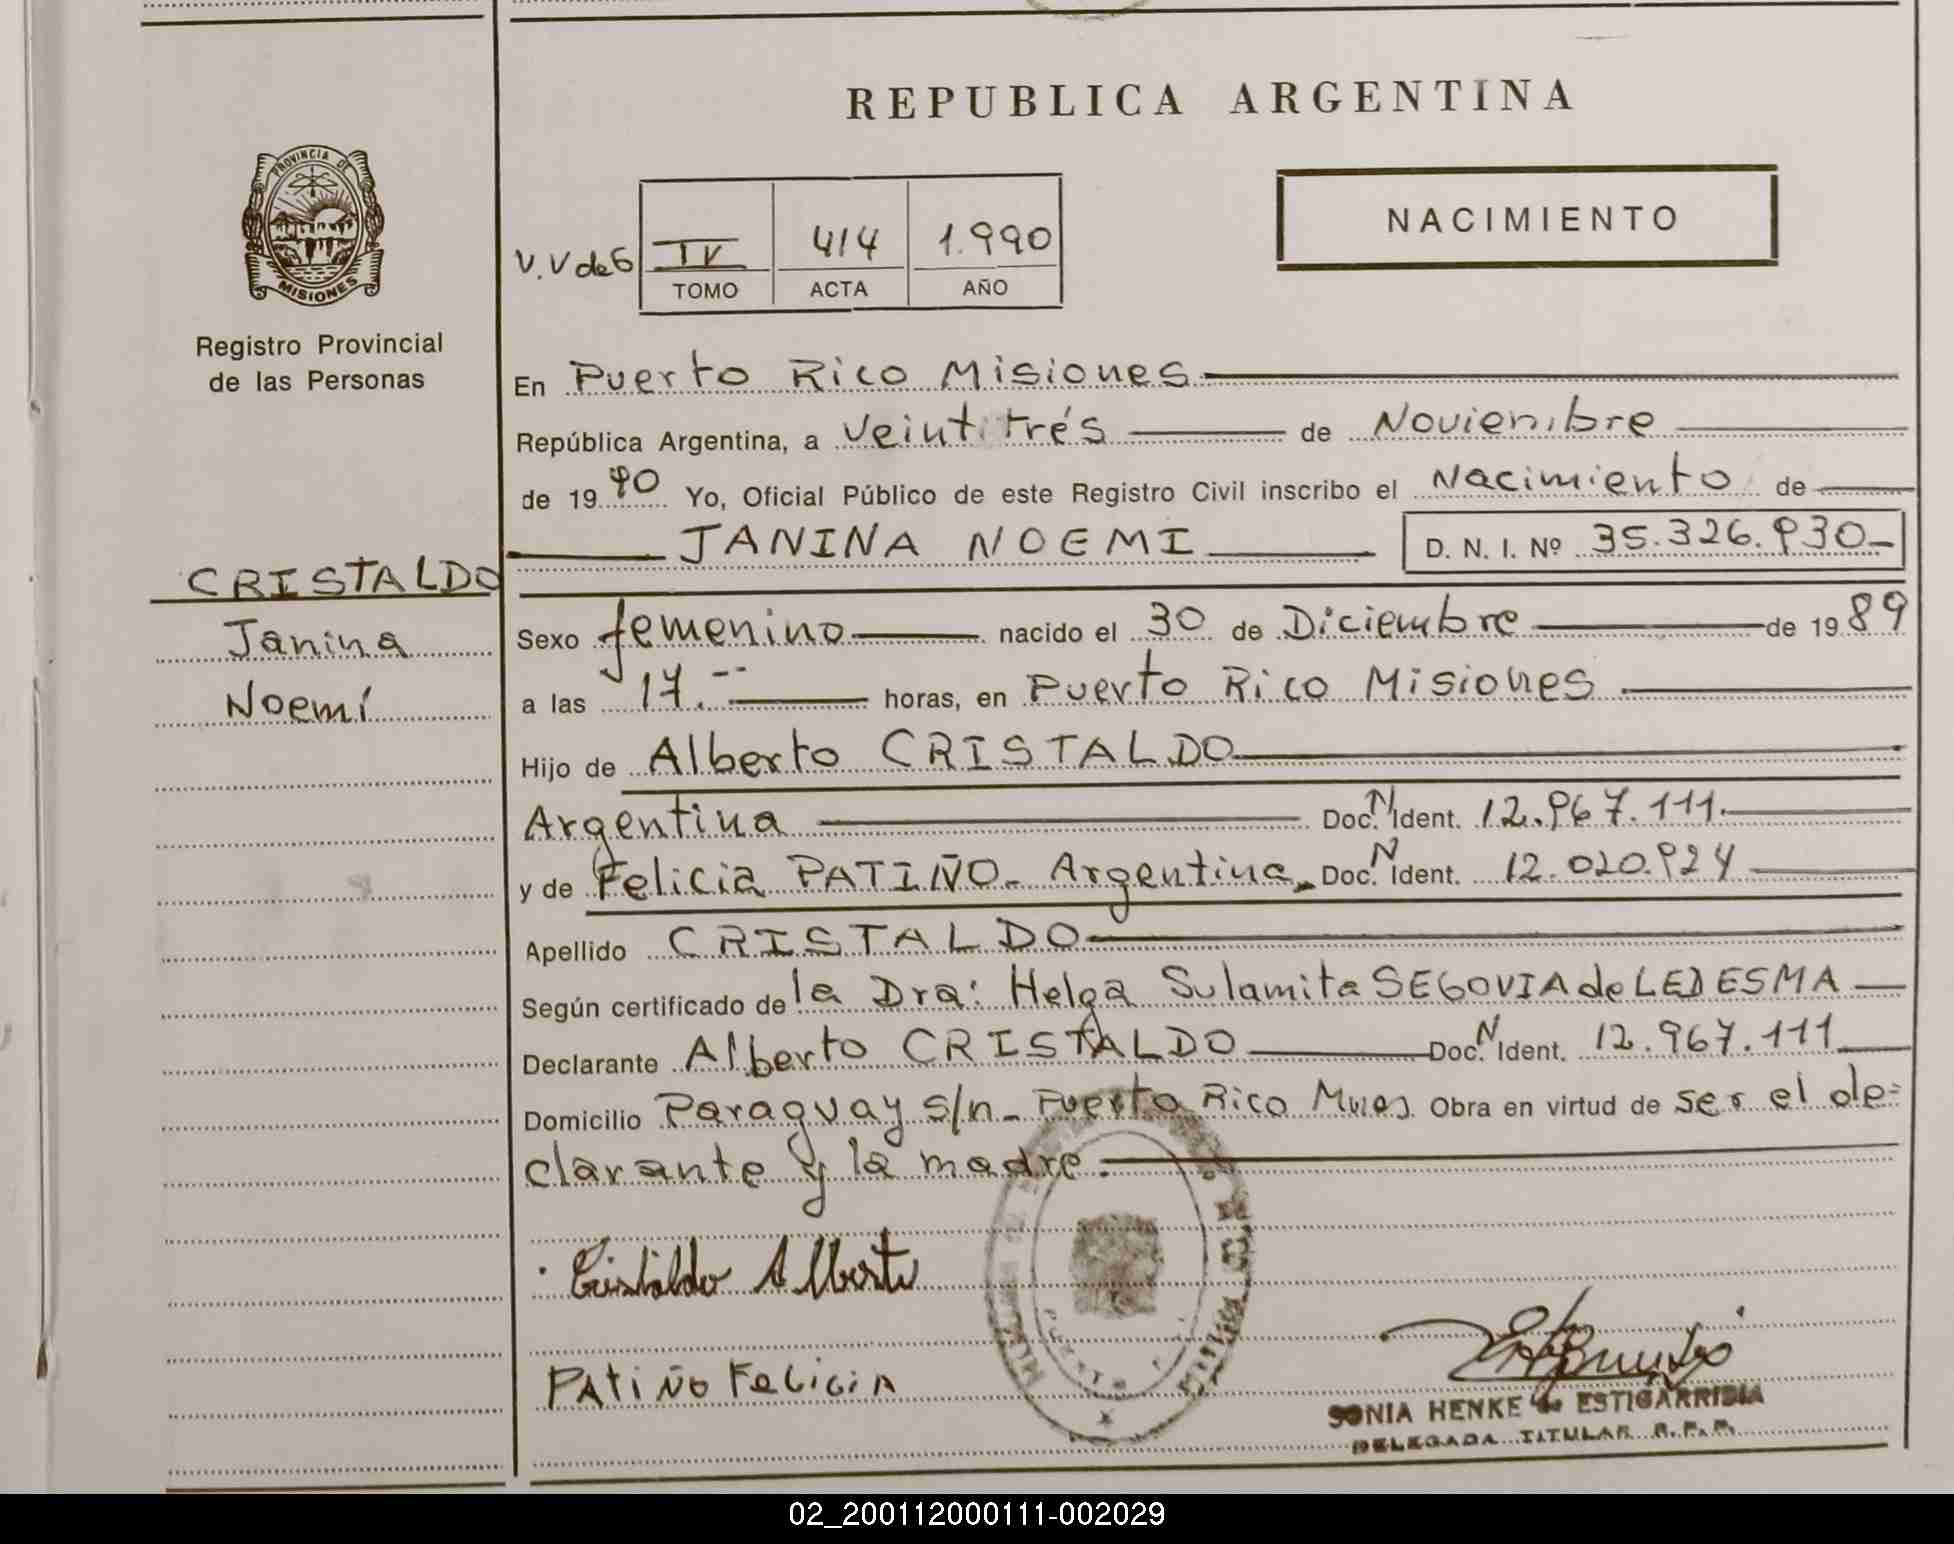 REPUBLICA ARGENTINA
PROVINCIA DE
MISIONES
Registro Provincial
de las Personas
NACIMIENTO
V.V de 6
IV 414 1.990
TOMO ACTA AÑO
En Puerto Rico Misiones
República Argentina, a Veintitrés de Noviembre
de 1990 Yo, Oficial Público de este Registro Civil inscribo el Nacimiento de
JANINA NOEMI D. N. I. Nº 35.326.930
CRISTALDO
Janina
Noemí
Sexo femenino nacido el 30 de Diciembre de 1989
a las 17.-- horas, en Puerto Rico Misiones
Hijo de Alberto CRISTALDO
Argentina Doc. N Ident. 12.967.111.
y de Felicia PATIÑO- Argentina Doc. N Ident. 12.020.924
Apellido CRISTALDO
Según certificado de la Dra: Helga Sulamita SEGOVIA de LEDESMA
Declarante Alberto CRISTALDO Doc. N Ident. 12.967.111
Domicilio Paraguay s/n- Puerto Rico Mnes Obra en virtud de ser el de=
clarante y la madre.
Cristaldo Alberto
PATIÑO FELICIA
SONIA HENKE de ESTIGARRIBIA
DELEGADA TITULAR R.P.P.
02_200112000111-002029